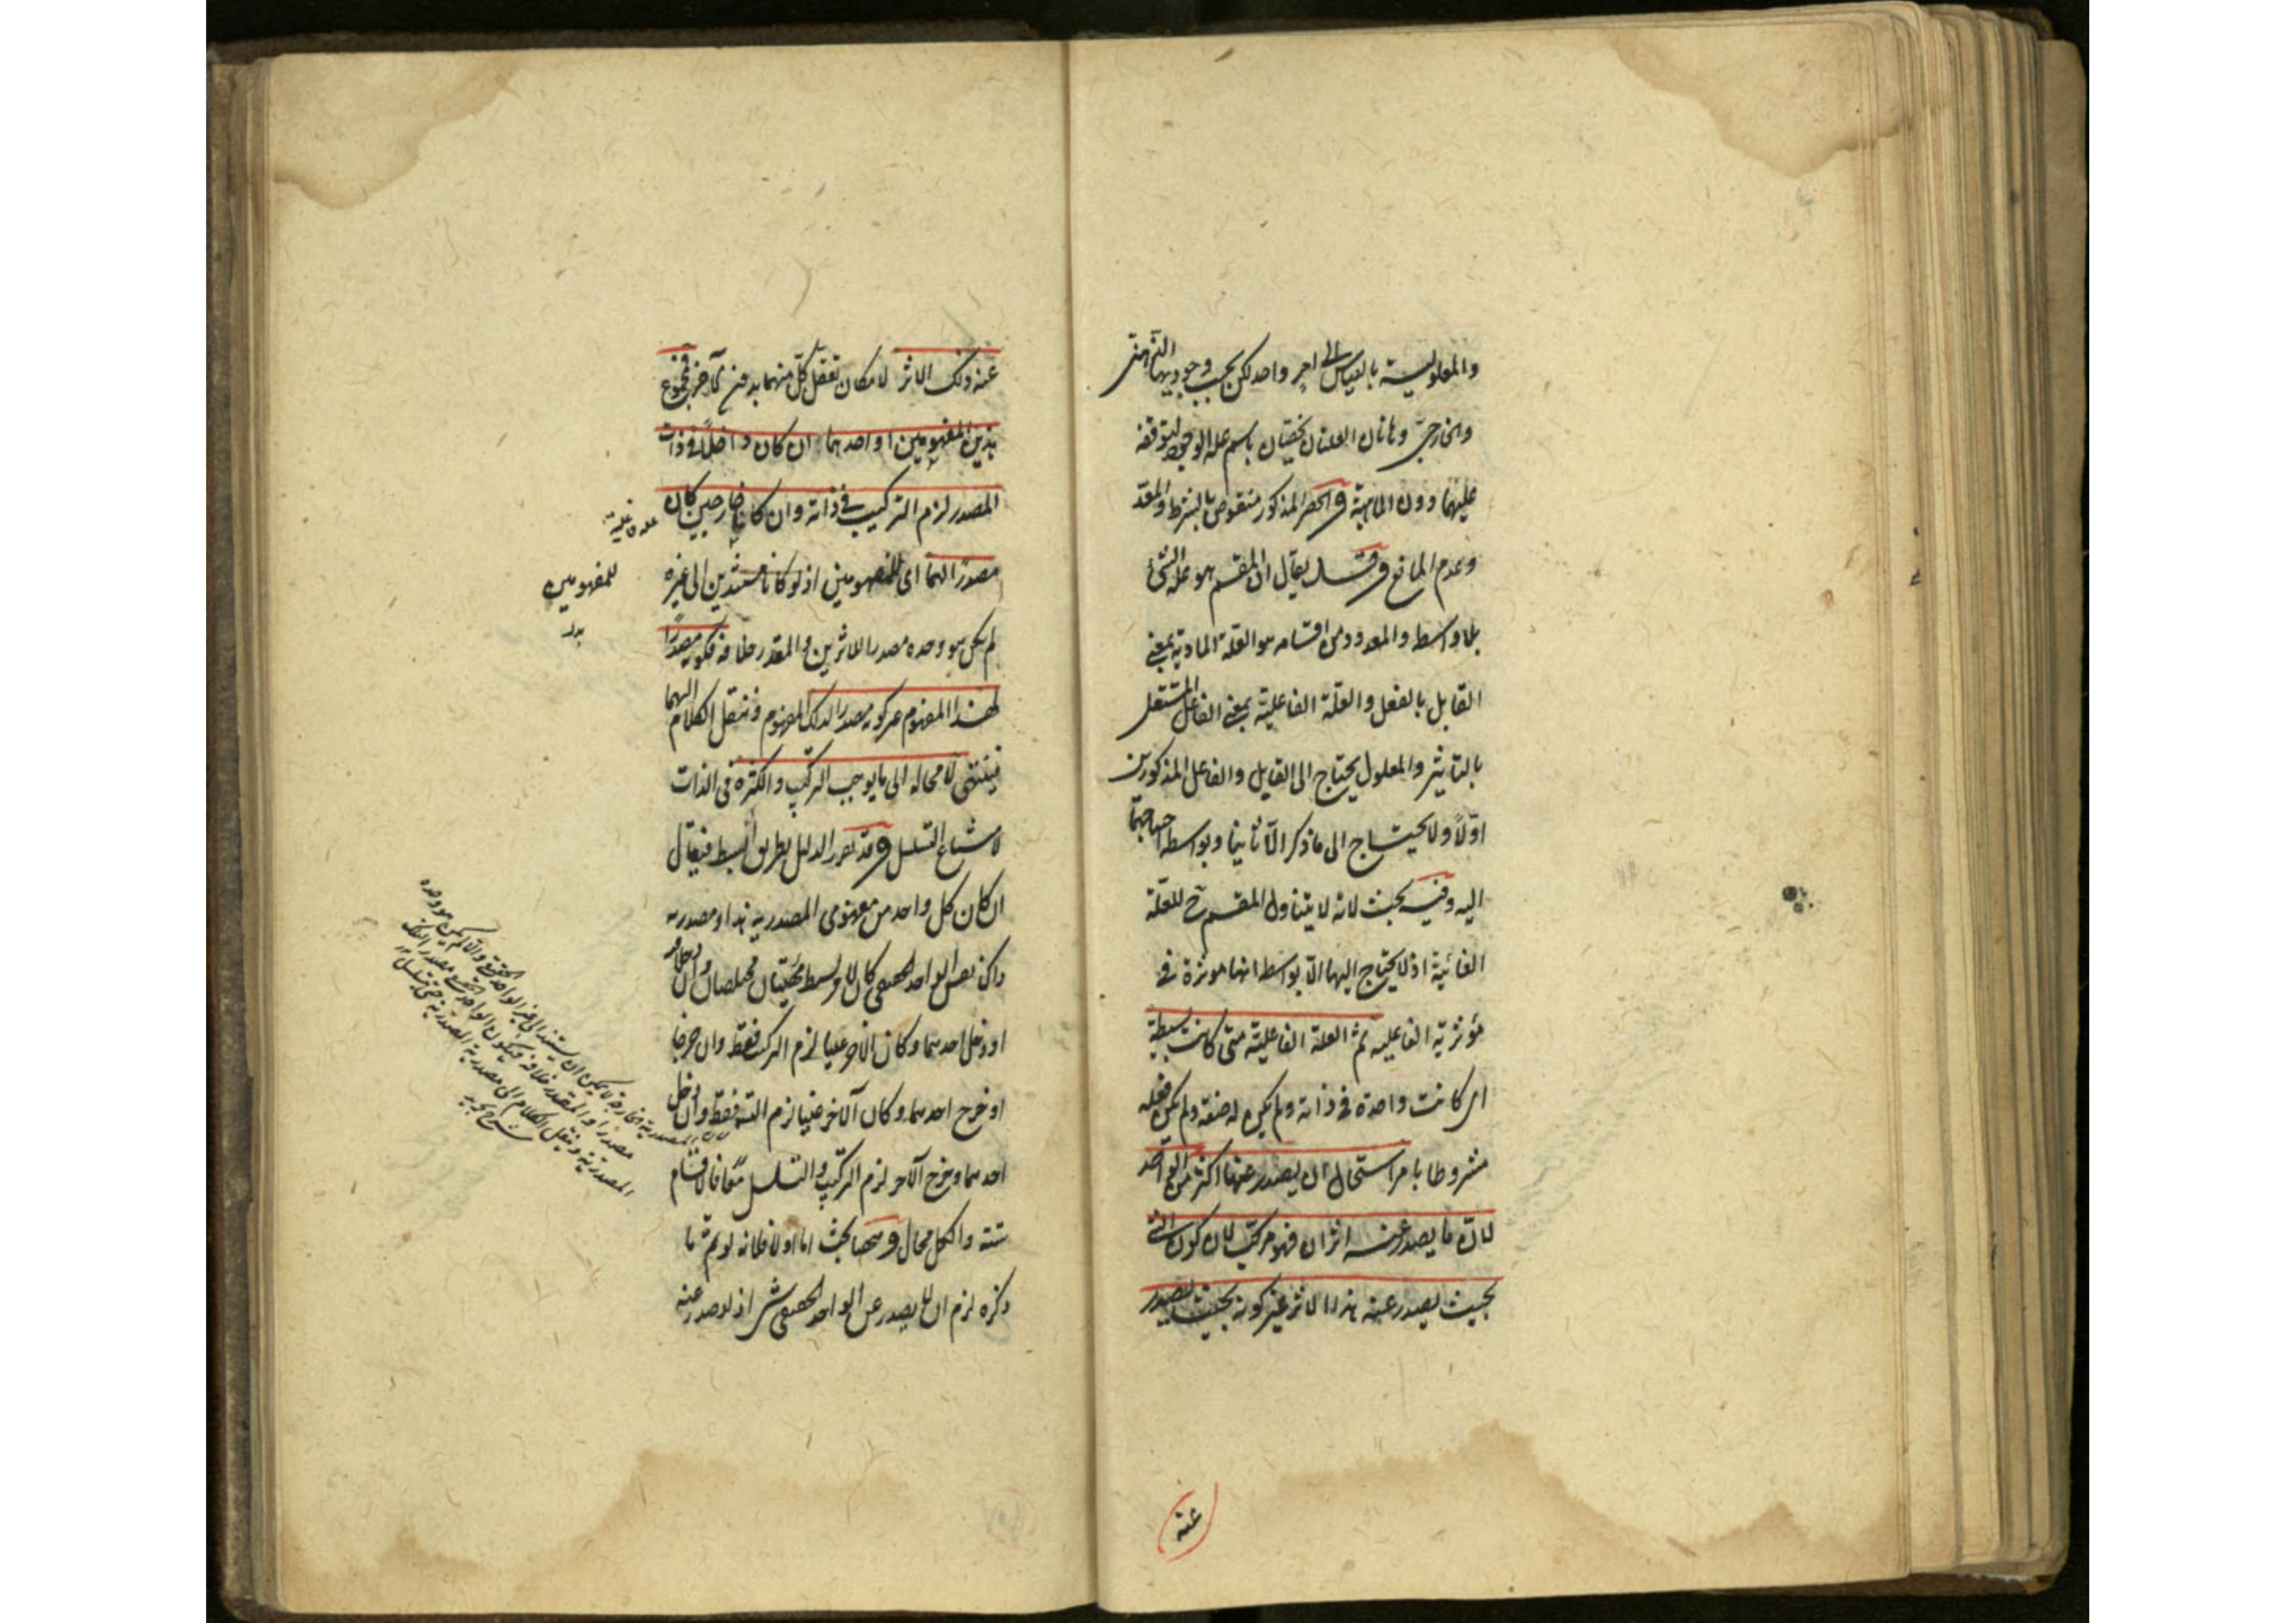 والمعلولية بالقياس الى امر واحد لكن بحسب وجوديهما الذهني
والخارجي وهاتان العلتان تختصان باسم علة الوجود لتوقفه
عليهما دون الماهية والحصر المذكور منقوض بالشرط والمعد
وعدم المانع وقد يقال ان المقسم هو علة الشئ
بلا واسطه والمعدود من اقسامه هو العلة المادية بمعنى
القابل بالفعل والعلة الفاعلية بمعنى الفاعل المستقل
بالتاثير والمعلول يحتاج الى القابل والفاعل المذكورين
اولا ولا يحتاج الى ما ذكر الا ثانيا وبواسطه احتياجهما
اليه وفيه بحث لانه لا يتناول المقسم ح للعلة
الغائية اذ لا يحتاج اليها الا بواسطه انها موثرة في
مؤثرية الفاعليه ثم العلة الفاعلية متى كانت بسيطة
اى كانت واحدة في ذاته ولم يكن له صفة ولم يكن فعله
مشروطا بامر استحال ان يصدر عنها اكثر من الواحد
لان ما يصدر عنه اثران فهو مركب لان كون الشئ
بحيث يصدر عنه هذا الاثر غير كونه بحيث يصدر
عنه
عنه ذلك الاثر لامكان تعقل كل منهما بدون الآخر فمجموع
هذين المفهومين او احدهما ان كان داخلا في ذات
المصدر لزم التركيب في ذاته وان كانا خارجين كان
مصدرا لهما اى للمفهومين اذ لو كانا مستندين الى غيره
لم يكن هو وحده مصدرا للاثرين والمقدر خلافه فكونه مصدرا
لهذا المفهوم غير كونه مصدرا لذلك المفهوم وننقل الكلام اليهما
فينتهى لا محاله الى ما يوجب التركيب والكثرة في الذات
لامتناع التسلسل وقد تقرر الدليل بطريق ابسط فيقال
ان كان كل واحد من مفهومى المصدرية هذا ومصدرية
ذاك نفس الواحد الحقيقى كان لامر بسيط مختلفتان وان دخلا
او دخل احدهما وكان الآخر عينا لزم التركيب فقط وان خرجا
او خرج احدهما وكان الآخر عينا لزم التسلسل فقط وان دخل
احدهما وخرج الآخر لزم التركيب والتسلسل معا فالاقسام
ستة والكل محال وههنا بحث اما اولا فلانه لو تم ما
ذكره لزم ان لا يصدر عن الواحد الحقيقى شئ اذ لو صدر عنه
للمفهومين
بدل